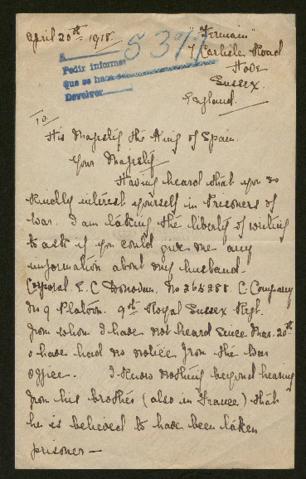 April 20th 1918.
"Fermain"
7 Carlisle Road
Hove
Sussex
England
A
Pedir informe
que se hace
Devolver
5377
To
His Majesty the King of Spain
Your Majesty
Having heard that you so
kindly interest yourself in Prisoners of
War. I am taking the liberty of writing
to ask if you could give me any
information about my husband-
Corporal E. C. Donovan. No 265288 C. Company
No 9 Platoon. 9th Royal Sussex Regt.
from whom I have not heard since Mar. 20th
I have had no notice from the War
Office. I know nothing beyond hearing
from his brother (also in France) that
he is believed to have been taken
prisoner—